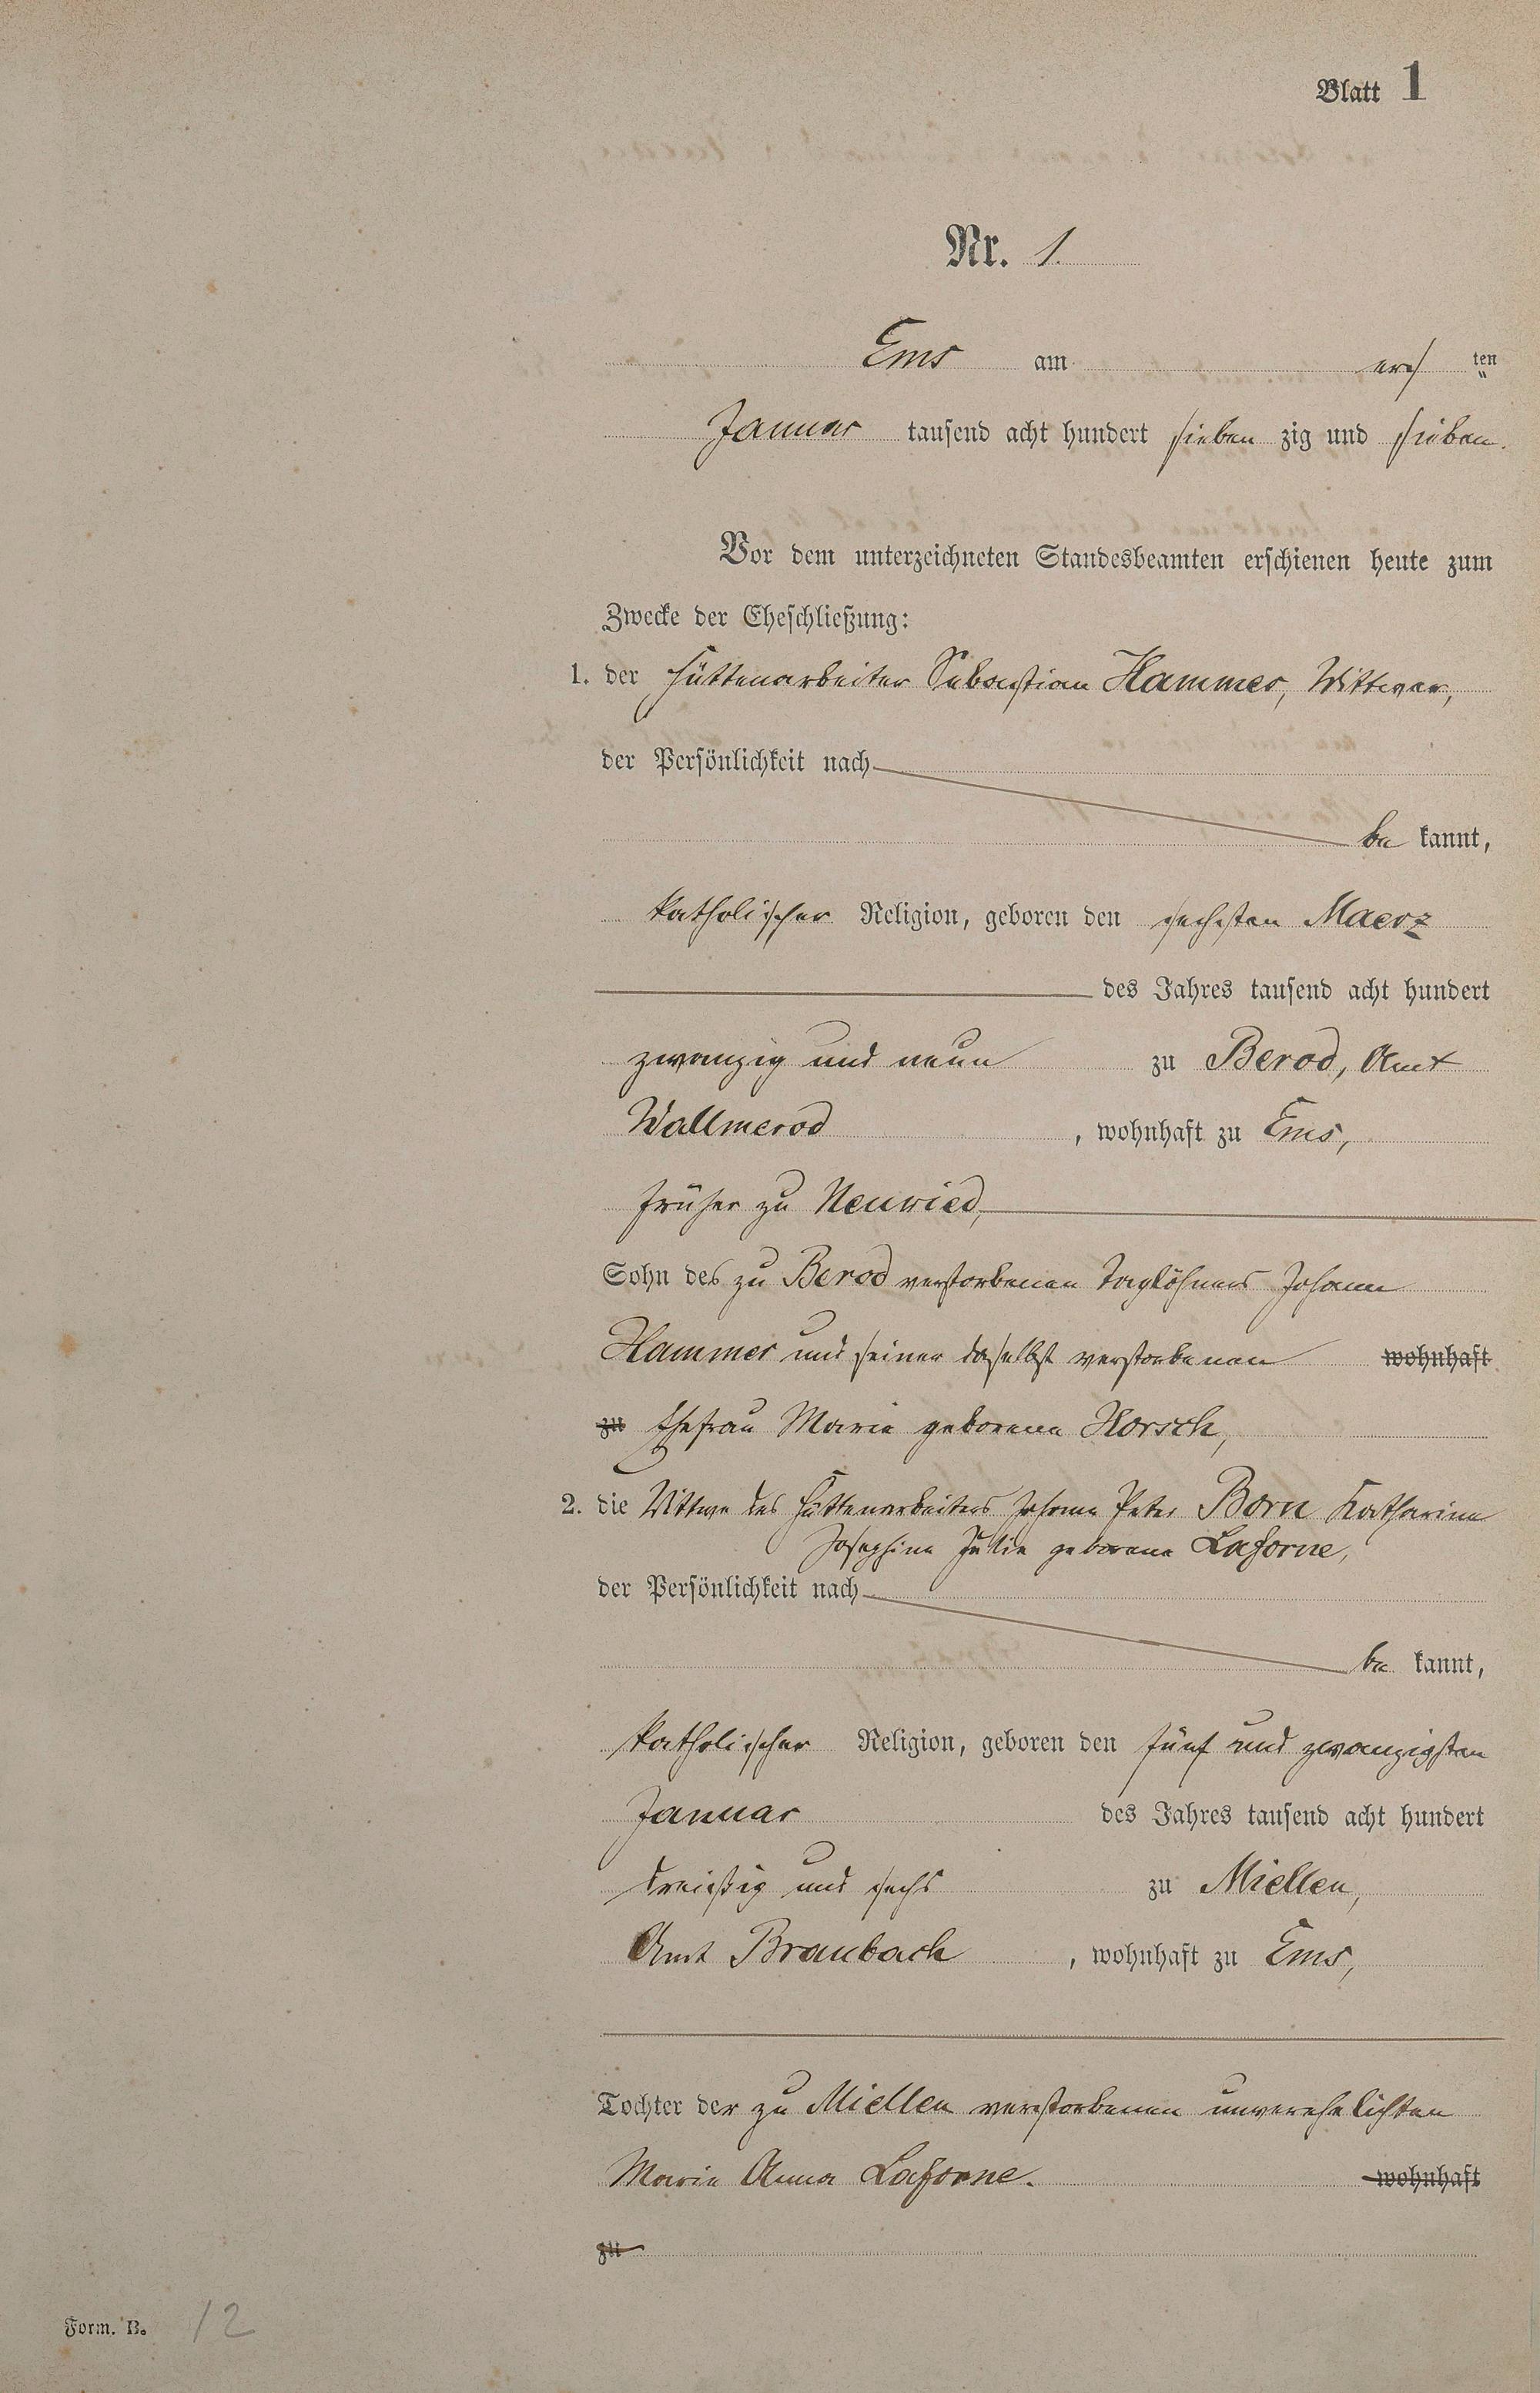 Blatt 1
Nr. 1.
Ems am ersten
Januar tausend acht hundert sieben zig und sieben.
Vor dem unterzeichneten Standesbeamten erschienen heute zum
Zwecke der Eheschließung:
1. der Hüttenarbeiter Sebastian Hammer, Wittwer,
der Persönlichkeit nach
be kannt,
katholischer Religion, geboren den sechsten Maerz
des Jahres tausend acht hundert
zwanzig und neun zu Berod, Amt
Wallmerod, wohnhaft zu Ems,
früher zu Neuwied,
Sohn des zu Berod verstorbenen Taglöhners Johann
Hammer und seiner daselbst verstorbenen wohnhaft
zu Ehefrau Marie geborene Horsch,
2. die Wittwe des Hüttenarbeiters Johann Peter Born Katharina
Josephina Julia geborene Laforne,
der Persönlichkeit nach
be kannt,
katholischer Religion, geboren den fünf und zwanzigsten
Januar des Jahres tausend acht hundert
dreißig und sechs zu Miellen,
Amt Braubach, wohnhaft zu Ems,
Tochter der zu Miellen verstorbenen unverehelichten
Maria Anna Laforne. wohnhaft
zu
Form. B. 12